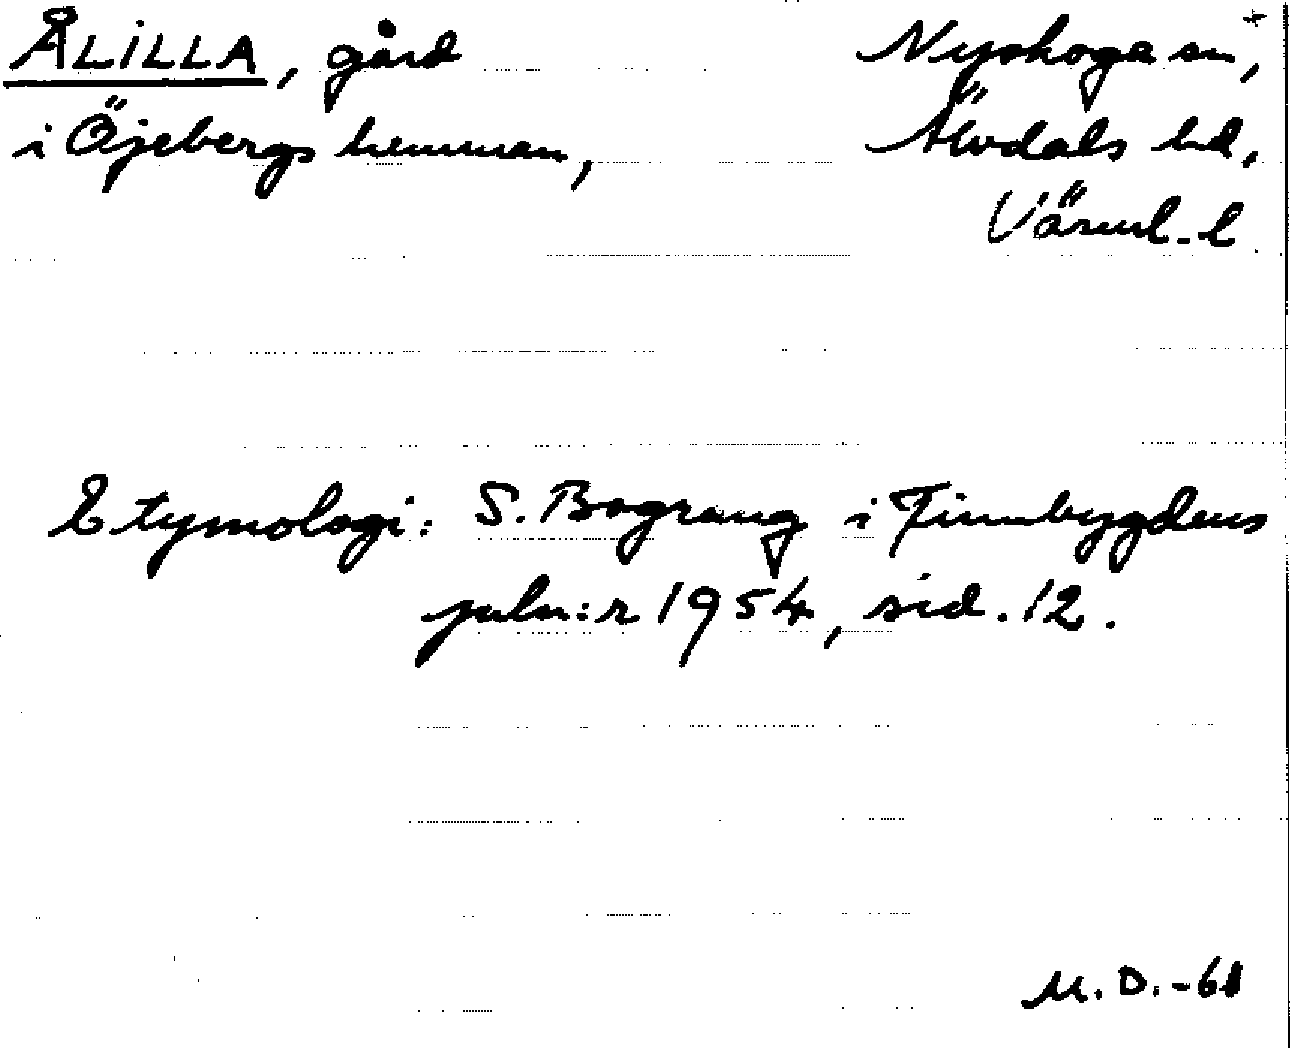 ÅLILLA, gård
i Öjebergs hemman,
Nyskoga sn,
Älvdals hd,
Värml. l.
Etymologi: S. Bograng i Finnbygdens
juln:r 1954, sid. 12.
M. D. -61